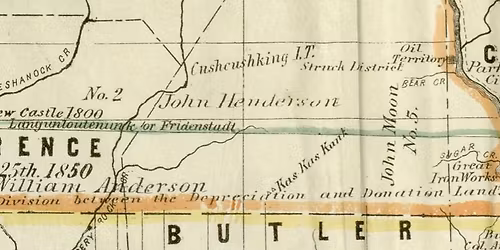 Cushcushking I.T.
Struck District
Oil
Territory
C
Par
Ci
ESHANOCK CR
BEAR CR
No. 2
John Henderson
ew Castle 1800
Languntoutenunk for Fridenstadt
John Moon
No. 5.
RENCE
25th. 1850
Kus Kus Kunk
SUGAR CR.
Great
Iron Works
William Anderson
Division between the Depreciation and Donation Land
BUTLER